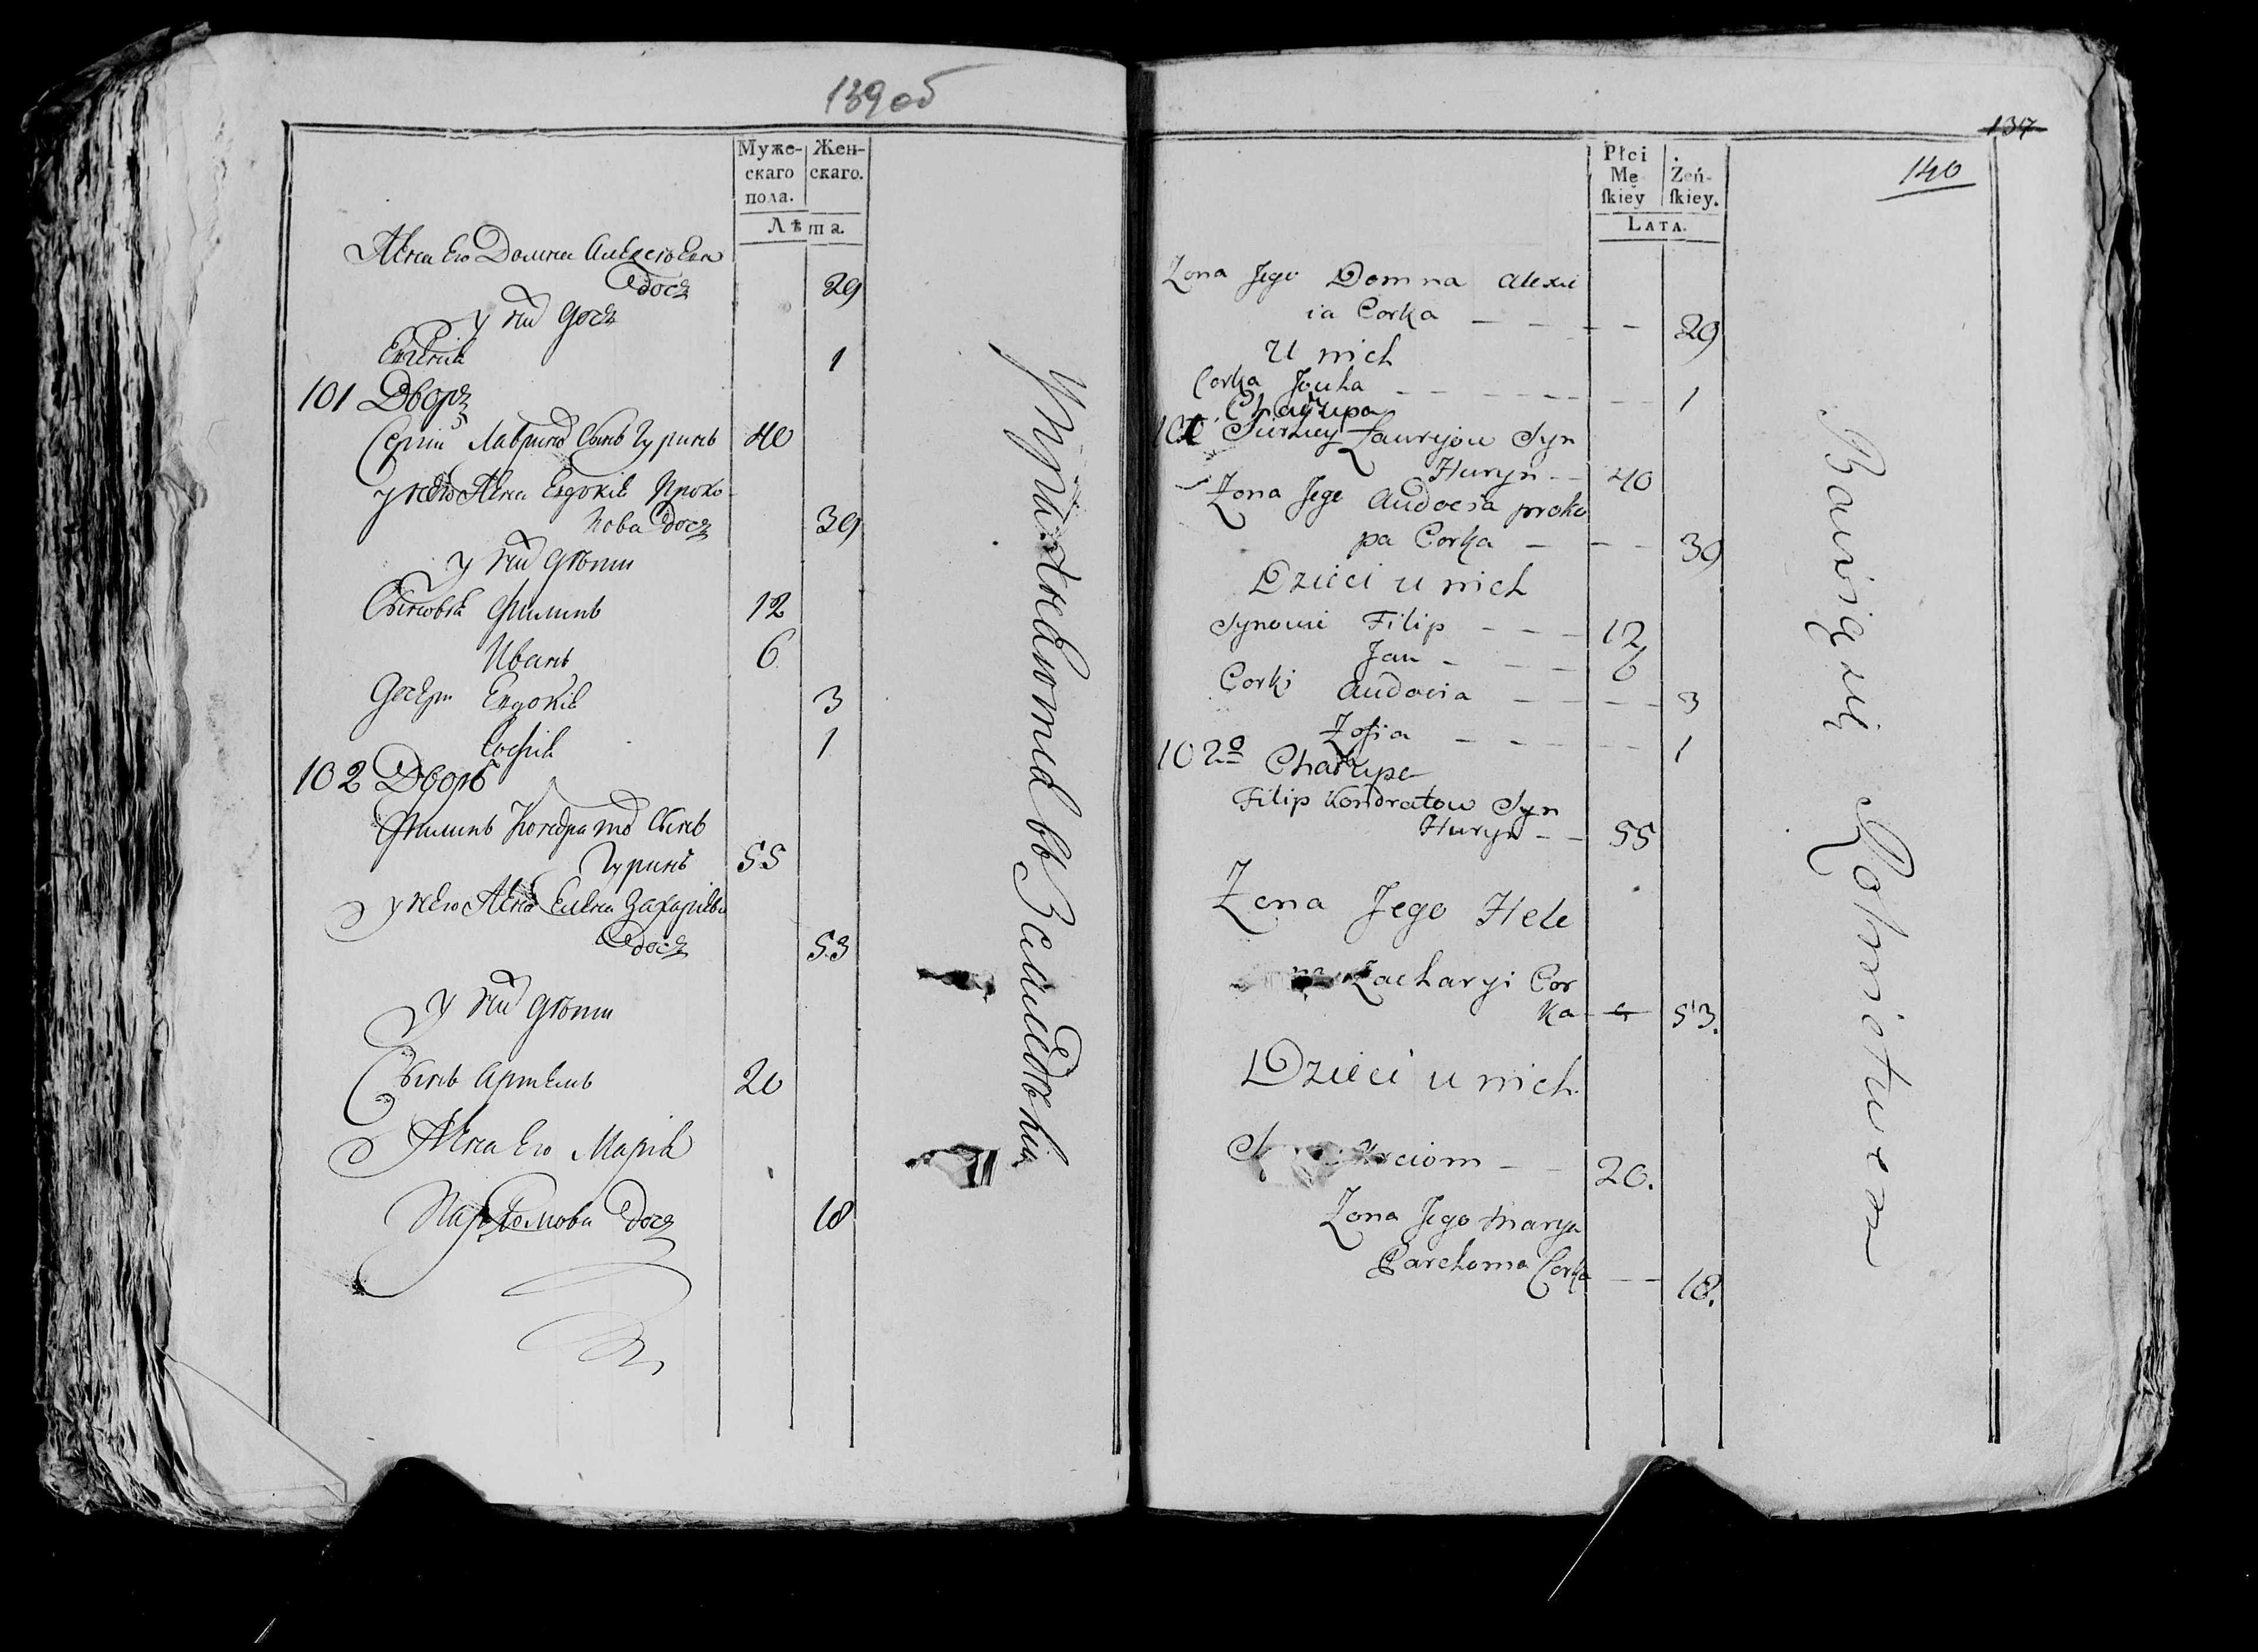 139 об
Муже-
скаго
пола.
Жен-
скаго.
Лѣта.
Жена Его Домна Алексѣева
дочь
29
у них дочь
Евгенія
1
101 Дворъ
Сергій Лаврино Сынъ Гуринъ 40
у него Жена Евдокія Проко
пова дочь
39
у них дѣти
Сыновья Филипъ 12
Иванъ 6
Дочери Евдокія 3
Софія 1
102 Дворъ
Филипъ Кондратов Сынъ
Гуринъ 55
у него Жена Елена Захаріева
дочь
53
у них дѣти
Сынъ Артемъ 20
Жена Его Марія
Пархомова дочь 18
Упражняются въ Земледѣліи
137
140
Płci
Mę
ſkiey
Żeń-
ſkiey.
LATA.
Zona Jego Domna Alexie
ia Corka - - - - 29
U nich
Corka Jouha - - - - 1
Chałupa
101 Siurhiey Lauryjow Syn
Huryn - - 40
Zona Jego Audocia proko
pa Corka - - - 39
Dzieci u nich
Synowie Filip - - - 12
Jan - - - 6
Corki Audocia - - - - 3
Zofia - - - - 1
102º Chałupa
Filip Kondratow Syn
Huryn - - 55
Zona Jego Hele
na Zacharyi Cor
ka - - 53.
Dzieci u nich
rciom - - 20.
Zona Jego Marya
Parchoma Corka - - 18.
Bawią się Rolnictwem